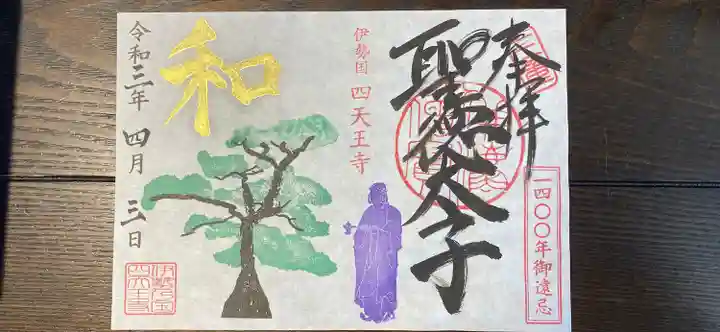 奉拝
聖徳太子
一四〇〇年御遠忌
伊勢国 四天王寺
和
令和三年 四月 三日